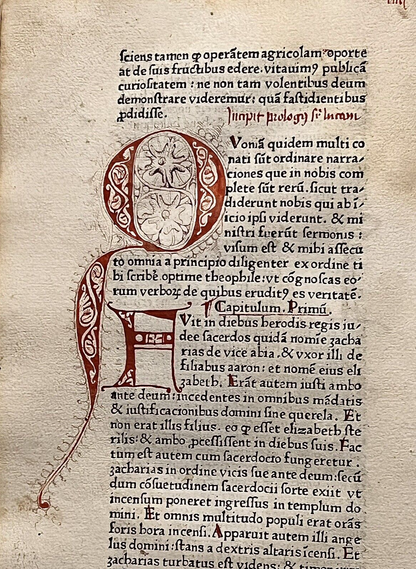 sciens tamen ꝙ operãtem agricolam oporte
at de suis fructibus edere. vitauimꝰ publicã
curiositatem : ne non tam volentibus deum
demonstrare videremur: quã fastidientibus
ꝓdidisse.
Incipit prologꝰ
QVoniã quidem multi co
nati sũt ordinare narra-
ciones que in nobis com
plete sũt rerũ. sicut tra-
diderunt nobis qui ab i-
icio ipsi viderunt. & mi
nistri fuerũt sermonis :
visum est & mihi assecu
to omnia a principio diligenter ex ordine ti
bi scribẽ optime theophile: vt cõgnoscas eo-
rum verboꝝ de quibus eruditꝰ es veritatẽ.
¶ Capitulum. Primũ.
FVit in diebus herodis regis iu-
dee sacerdos quidã nomie zacha
rias de vice abia. & vxor illi de
filiabus aaron: et nomẽ eius eli
zabeth. Erãt autem iusti ambo
ante deum: incedentes in omnibus mãdatis
& iustificacionibus domini sine querela. Et
non erat illis filius. eo ꝙ esset elizabeth ste
rilis: & ambo ꝓcessissent in diebus suis. Fac
tum est autem cum sacerdocio fungeretur.
zacharias in ordine vicis sue ante deum: secũ
dum cõsuetudinem sacerdocii sorte exiit vt
incensum poneret ingressus in templum do
mini. Et omnis multitudo populi erat orãs
foris hora incensi. Apparuit autem illi ange
lus domini: stans a dextris altaris ĩcensi. Et
zacharias turbatus est videns: & timor